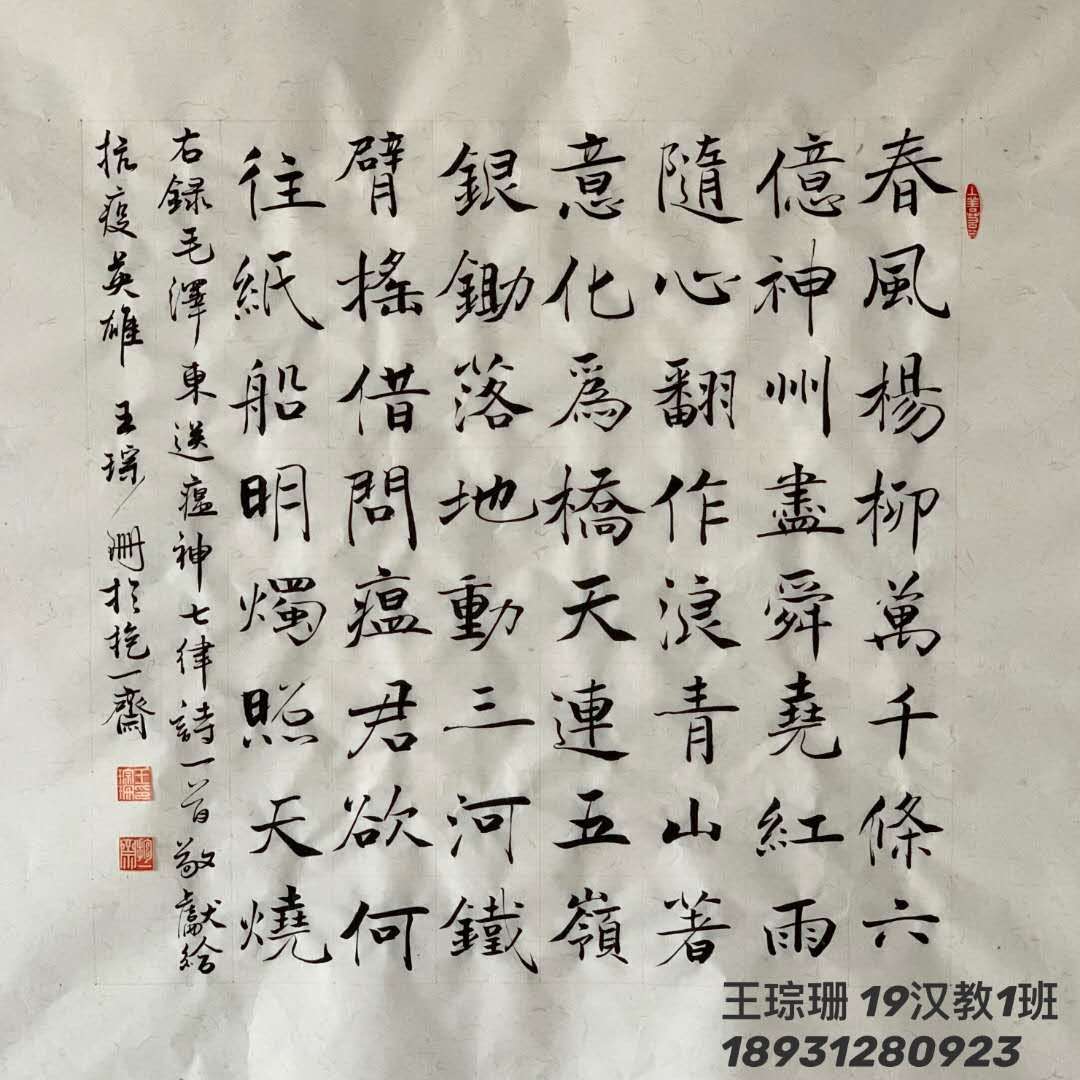 春風楊柳萬千條六
億神州盡舜堯紅雨
隨心翻作浪青山著
意化爲橋天連五嶺
銀鋤落地動三河鐵
臂搖借問瘟君欲何
往紙船明燭照天燒
右録毛澤東送瘟神七律詩一首敬獻給
抗疫英雄 王琮珊於抱一齋
王琮珊 19汉教1班
18931280923